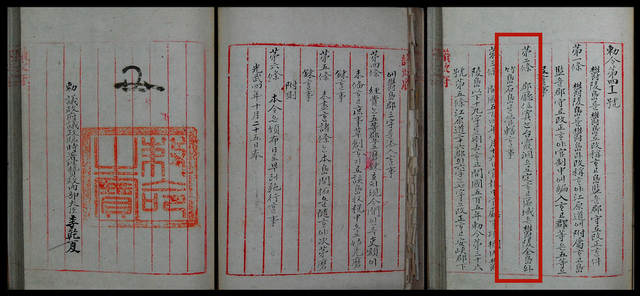 勅令第四十一號
鬱陵島를鬱島로改稱ᄒᆞ고島監을郡守로改正ᄒᆞᆫ件
第一條 鬱陵島를鬱島라改稱ᄒᆞ야江原道에附屬ᄒᆞ고島
監을郡守로改正ᄒᆞ야官制中에編入ᄒᆞ고郡等은五等으로
ᄒᆞᆯ事
第二條 郡廳位寘ᄂᆞᆫ台霞洞으로定ᄒᆞ고區域은鬱陵全島와
竹島石島를管轄ᄒᆞᆯ事
第三條 開國五百四年八月十六日官報中
陵島以下十九字를刪去ᄒᆞ고開國五百五年勅令第三十六
號第五條江原道二十六郡의六字ᄂᆞᆫ七字로改正ᄒᆞ고安峽郡下
에鬱島郡三字를添入ᄒᆞᆯ事
第四條 經費ᄂᆞᆫ五等郡으로磨鍊호ᄃᆡ現今間인즉吏額이
未備ᄒᆞ고庶事草創ᄒᆞ기로該島收稅中으로姑先磨
鍊ᄒᆞᆯ事
第五條 未盡ᄒᆞᆫ諸條ᄂᆞᆫ本島開拓을隨ᄒᆞ야次第磨
鍊ᄒᆞᆯ事
附則
第六條 本令은頒布日로봇터施行ᄒᆞᆯ事
光武四年十月二十五日奉
勅 議政府議政臨時署理贊政內部大臣李乾夏
勅命之寶